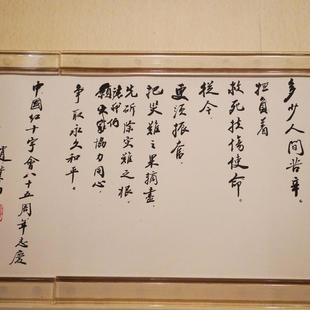 多少人間苦辛。
担負着
救死扶傷使命。
從今
更須振奮，
把災難之果摘盡，
先斫除災難之根。
願大家協力同心，
争取永久和平。
中國红十字會八十五周年志慶
趙樸初